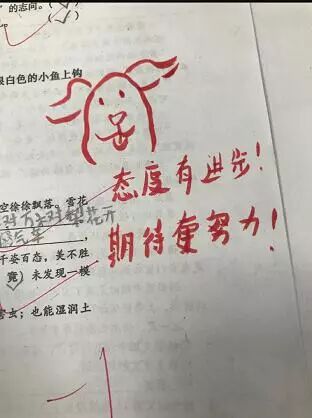 ”的志向。(√)
(√)
银白色的小鱼上钩
态度有进步！
空徐徐飘落。雪花
期待更努力！
千姿百态，美不胜
竟)未发现一模
害虫；也能湿润土
-1